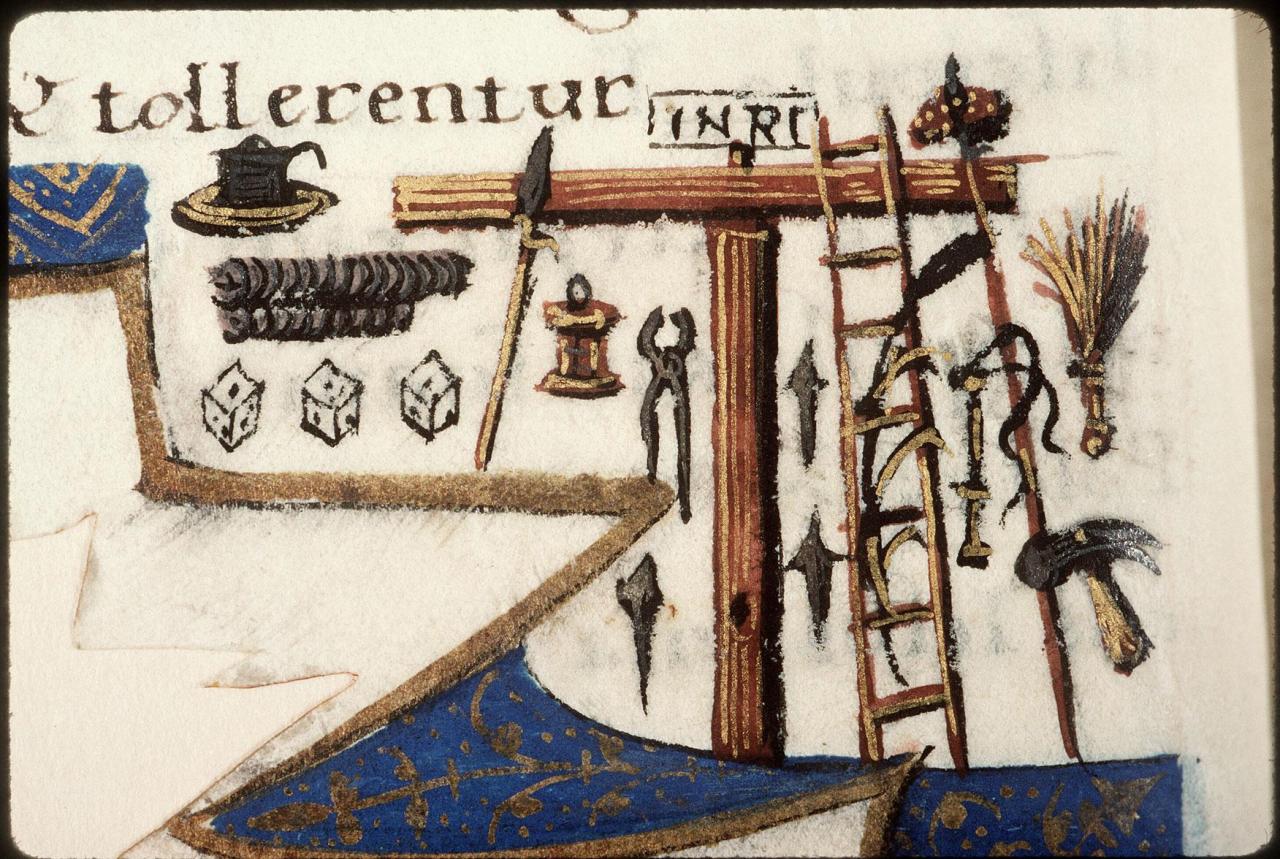 & tollerentur
INRI